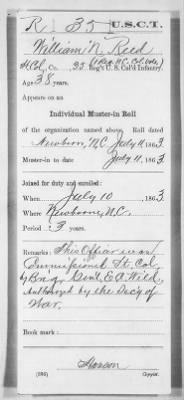 R 35 U.S.C.T.
William N. Reed
Lt. Col., Co. 35 Reg't U. S. Col'd Infantry.
Age 38 years.
Appears on an
Individual Muster-in Roll
of the organization named above. Roll dated
Newbern, N.C. July 11, 1863.
Muster-in to date July 11, 1863.
Joined for duty and enrolled:
When July 10, 1863
Where Newberne, N.C.
Period 3 years.
Remarks: This Officer was
Commissioned Lt. Col.
by Brig. Genl. E. A. Wild,
Authorized by the Secy of
War.
Book mark:
(386) Copyist.